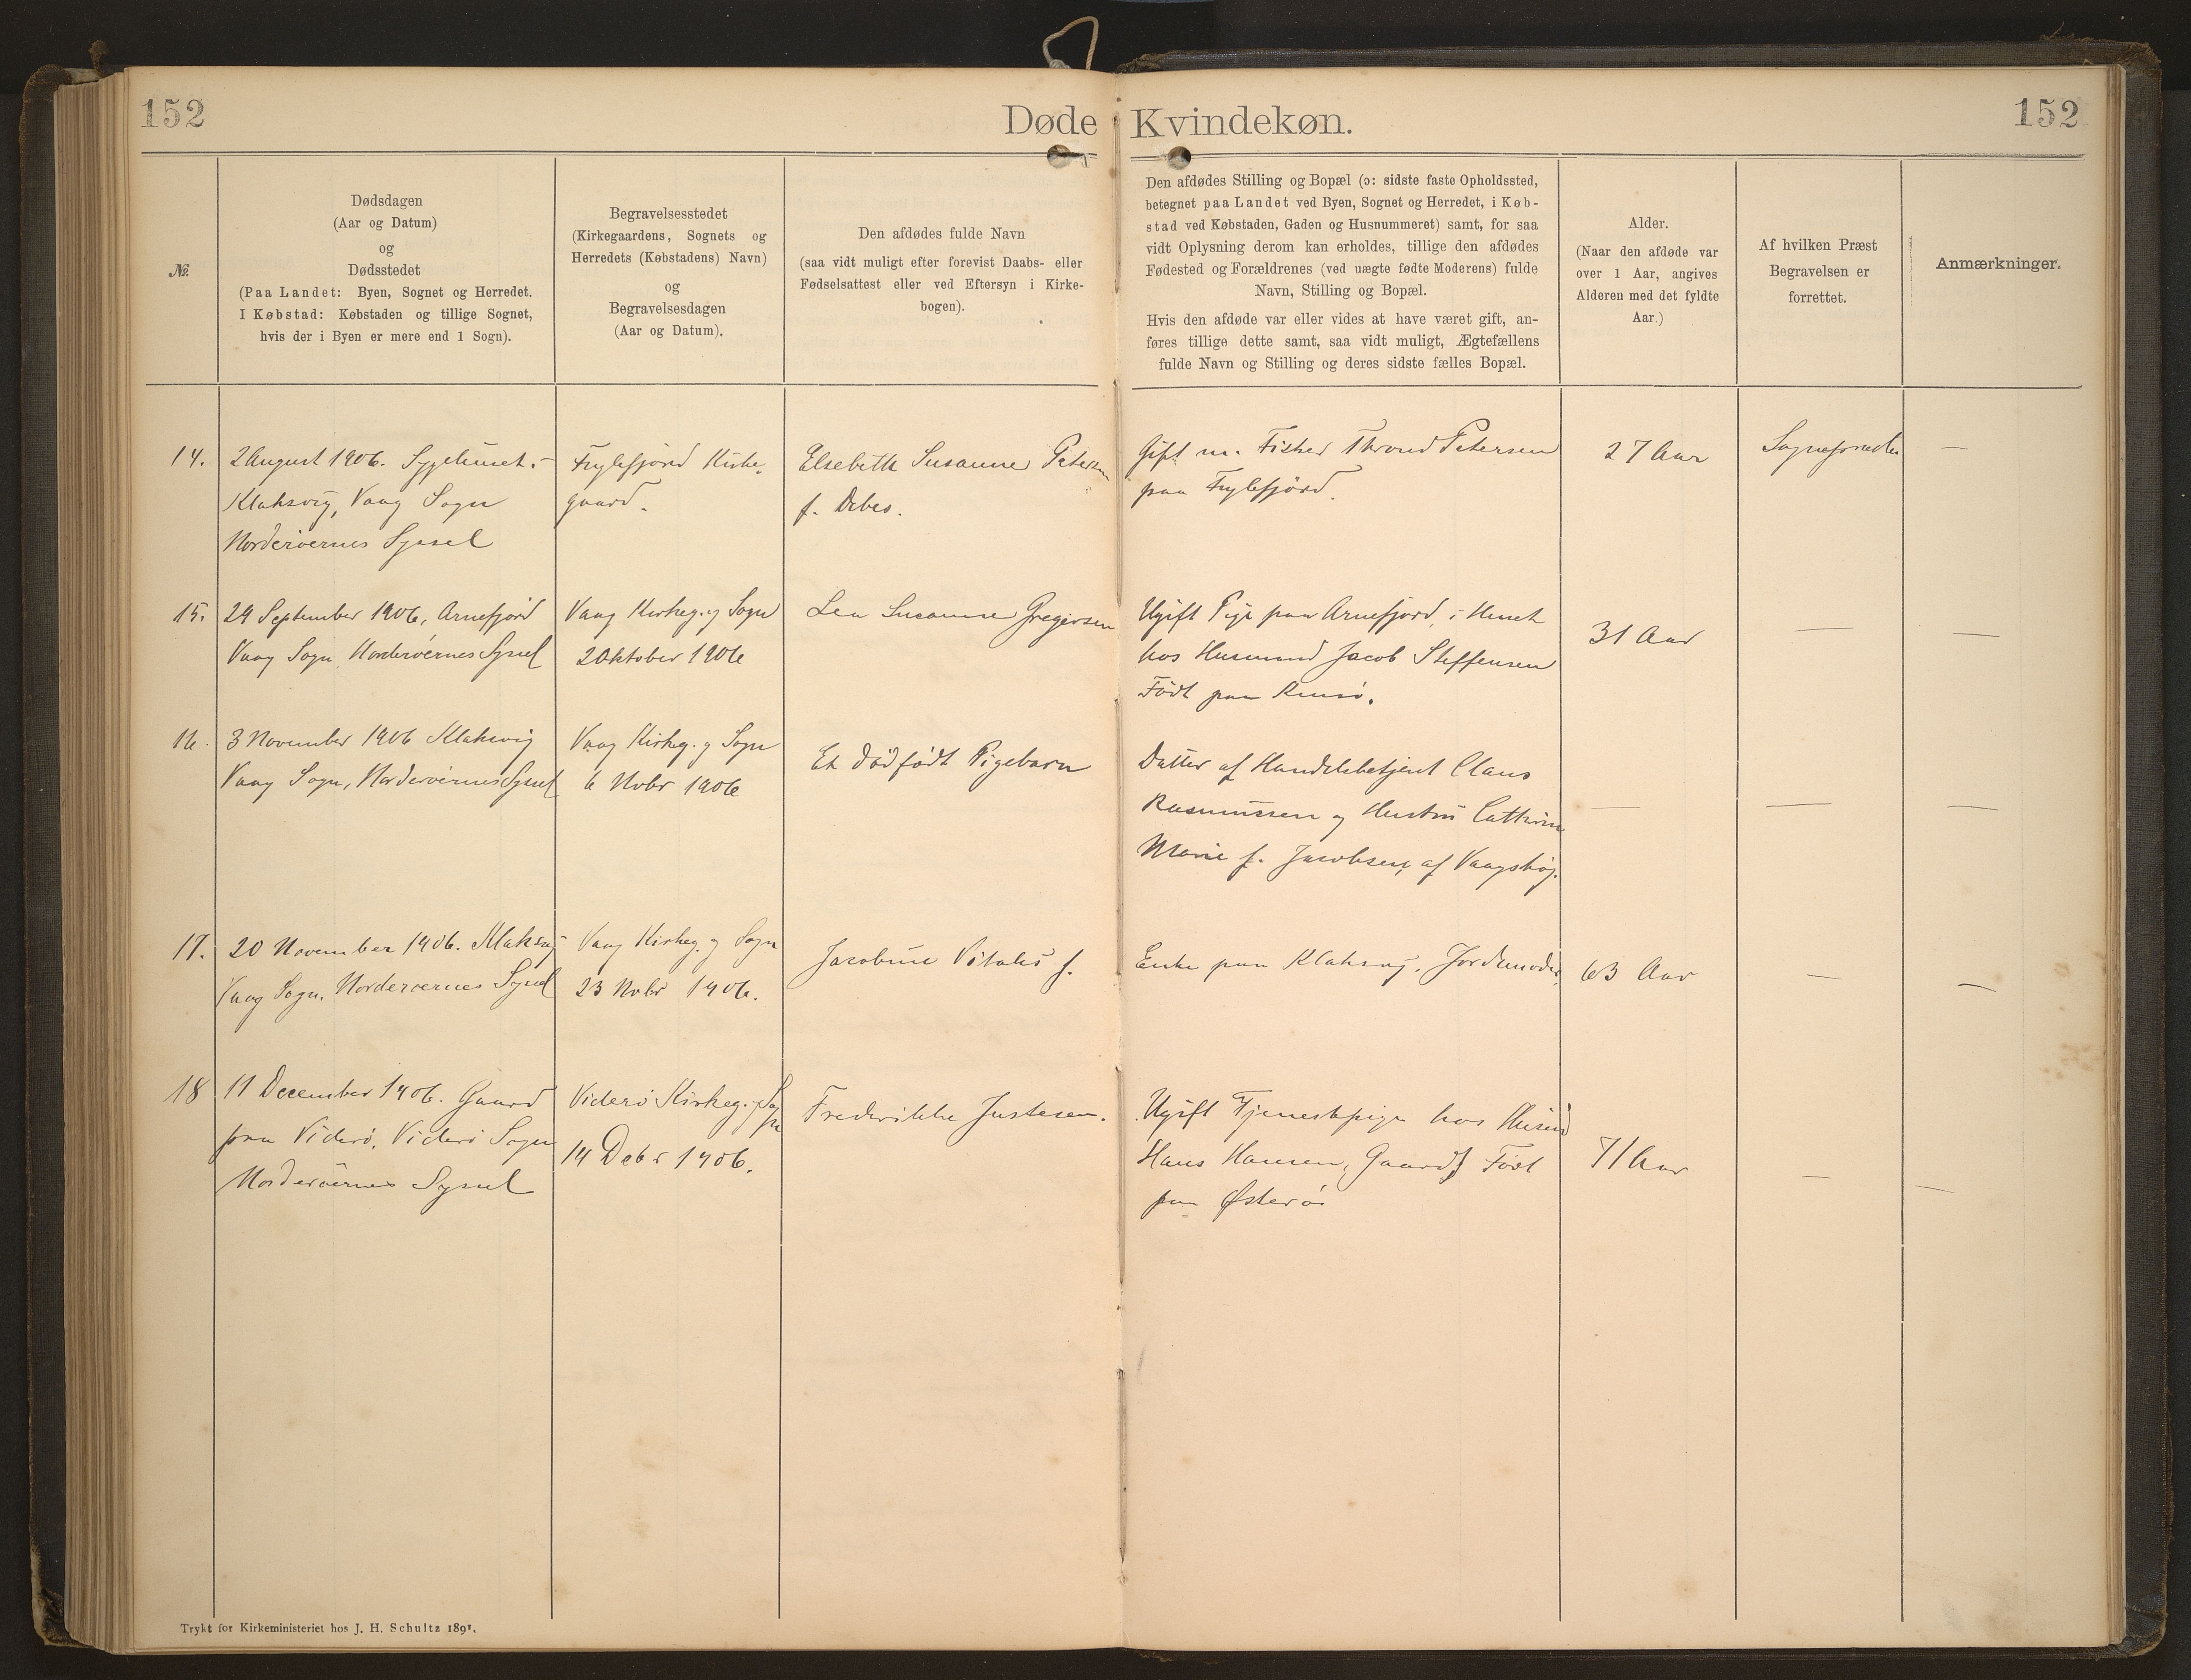 152
Døde
Kvindekøn.
152
№.
Dødsdagen
(Aar og Datum)
og
Dødsstedet
(Paa Landet: Byen, Sognet og Herredet.
I Købstad: Købstaden og tillige Sognet,
hvis der i Byen er mere end 1 Sogn).
Begravelsesstedet
(Kirkegaardens, Sognets og
Herredets (Købstadens) Navn)
og
Begravelsesdagen
(Aar og Datum).
Den afdødes fulde Navn
(saa vidt muligt efter forevist Daabs- eller
Fødselsattest eller ved Eftersyn i Kirke-
bogen).
Den afdødes Stilling og Bopæl (ɔ: sidste faste Opholdssted,
betegnet paa Landet ved Byen, Sognet og Herredet, i Køb-
stad ved Købstaden, Gaden og Husnummeret) samt, for saa
vidt Oplysning derom kan erholdes, tillige den afdødes
Fødested og Forældrenes (ved uægte fødte Moderens) fulde
Navn, Stilling og Bopæl.
Hvis den afdøde var eller vides at have været gift, an-
føres tillige dette samt, saa vidt muligt, Ægtefællens
fulde Navn og Stilling og deres sidste fælles Bopæl.
Alder.
(Naar den afdøde var
over 1 Aar, angives
Alderen med det fyldte
Aar.)
Af hvilken Præst
Begravelsen er
forrettet.
Anmærkninger.
14.
2 August 1906. Sygehuset.
Klaksvig, Vaag Sogn
Norderøernes Syssel
Fuglefjord Kirke-
gaard.
Elsebeth Susanne Petersen
f. Debes.
Gift m. Fisker Thrond Petersen
paa Fuglefjörd.
27 Aar
Sognepræsten
—
15.
29 September 1906, Arnefjörd
Vaag Sogn, Norderöernes Syssel
Vaag Kirkeg. og Sogn
2 Oktober 1906
Lea Susanne Gregersen
Ugift Pige paa Arnefjord, i Huset
hos Husmand Jacob Steffensen
Födt paa Kunö.
31 Aar
—
—
16.
3 November 1906 Klaksvig
Vaag Sogn, Norderöernes Syssel
Vaag Kirkeg. og Sogn
6 Nobr 1906
Et dödfödt Pigebarn
Datter af Handelsbetjent Claus
Rasmussen og Hustru Cathrine
Marie f. Jacobsen, af Vaagshøj.
—
—
—
17.
20 November 1906. Klaksvig
Vaag Sogn, Norderøernes Syssel
Vaag Kirkeg. og Sogn
23 Nobr 1906.
Jacobine Vitalis f.
Enke paa Klaksvig. Jordemoder.
63 Aar
—
—
18
11 December 1906. Gaard
paa Viderö, Viderö Sogn
Norderöernes Syssel
Viderö Kirkeg. og Sogn
14 Debr 1906.
Frederikke Justesen.
Ugift Tjenestepige hos
Hans Hansen, Gaard, Födt
paa Østerö.
71 Aar
—
—
Trykt for Kirkeministeriet hos J. H. Schultz 1891.